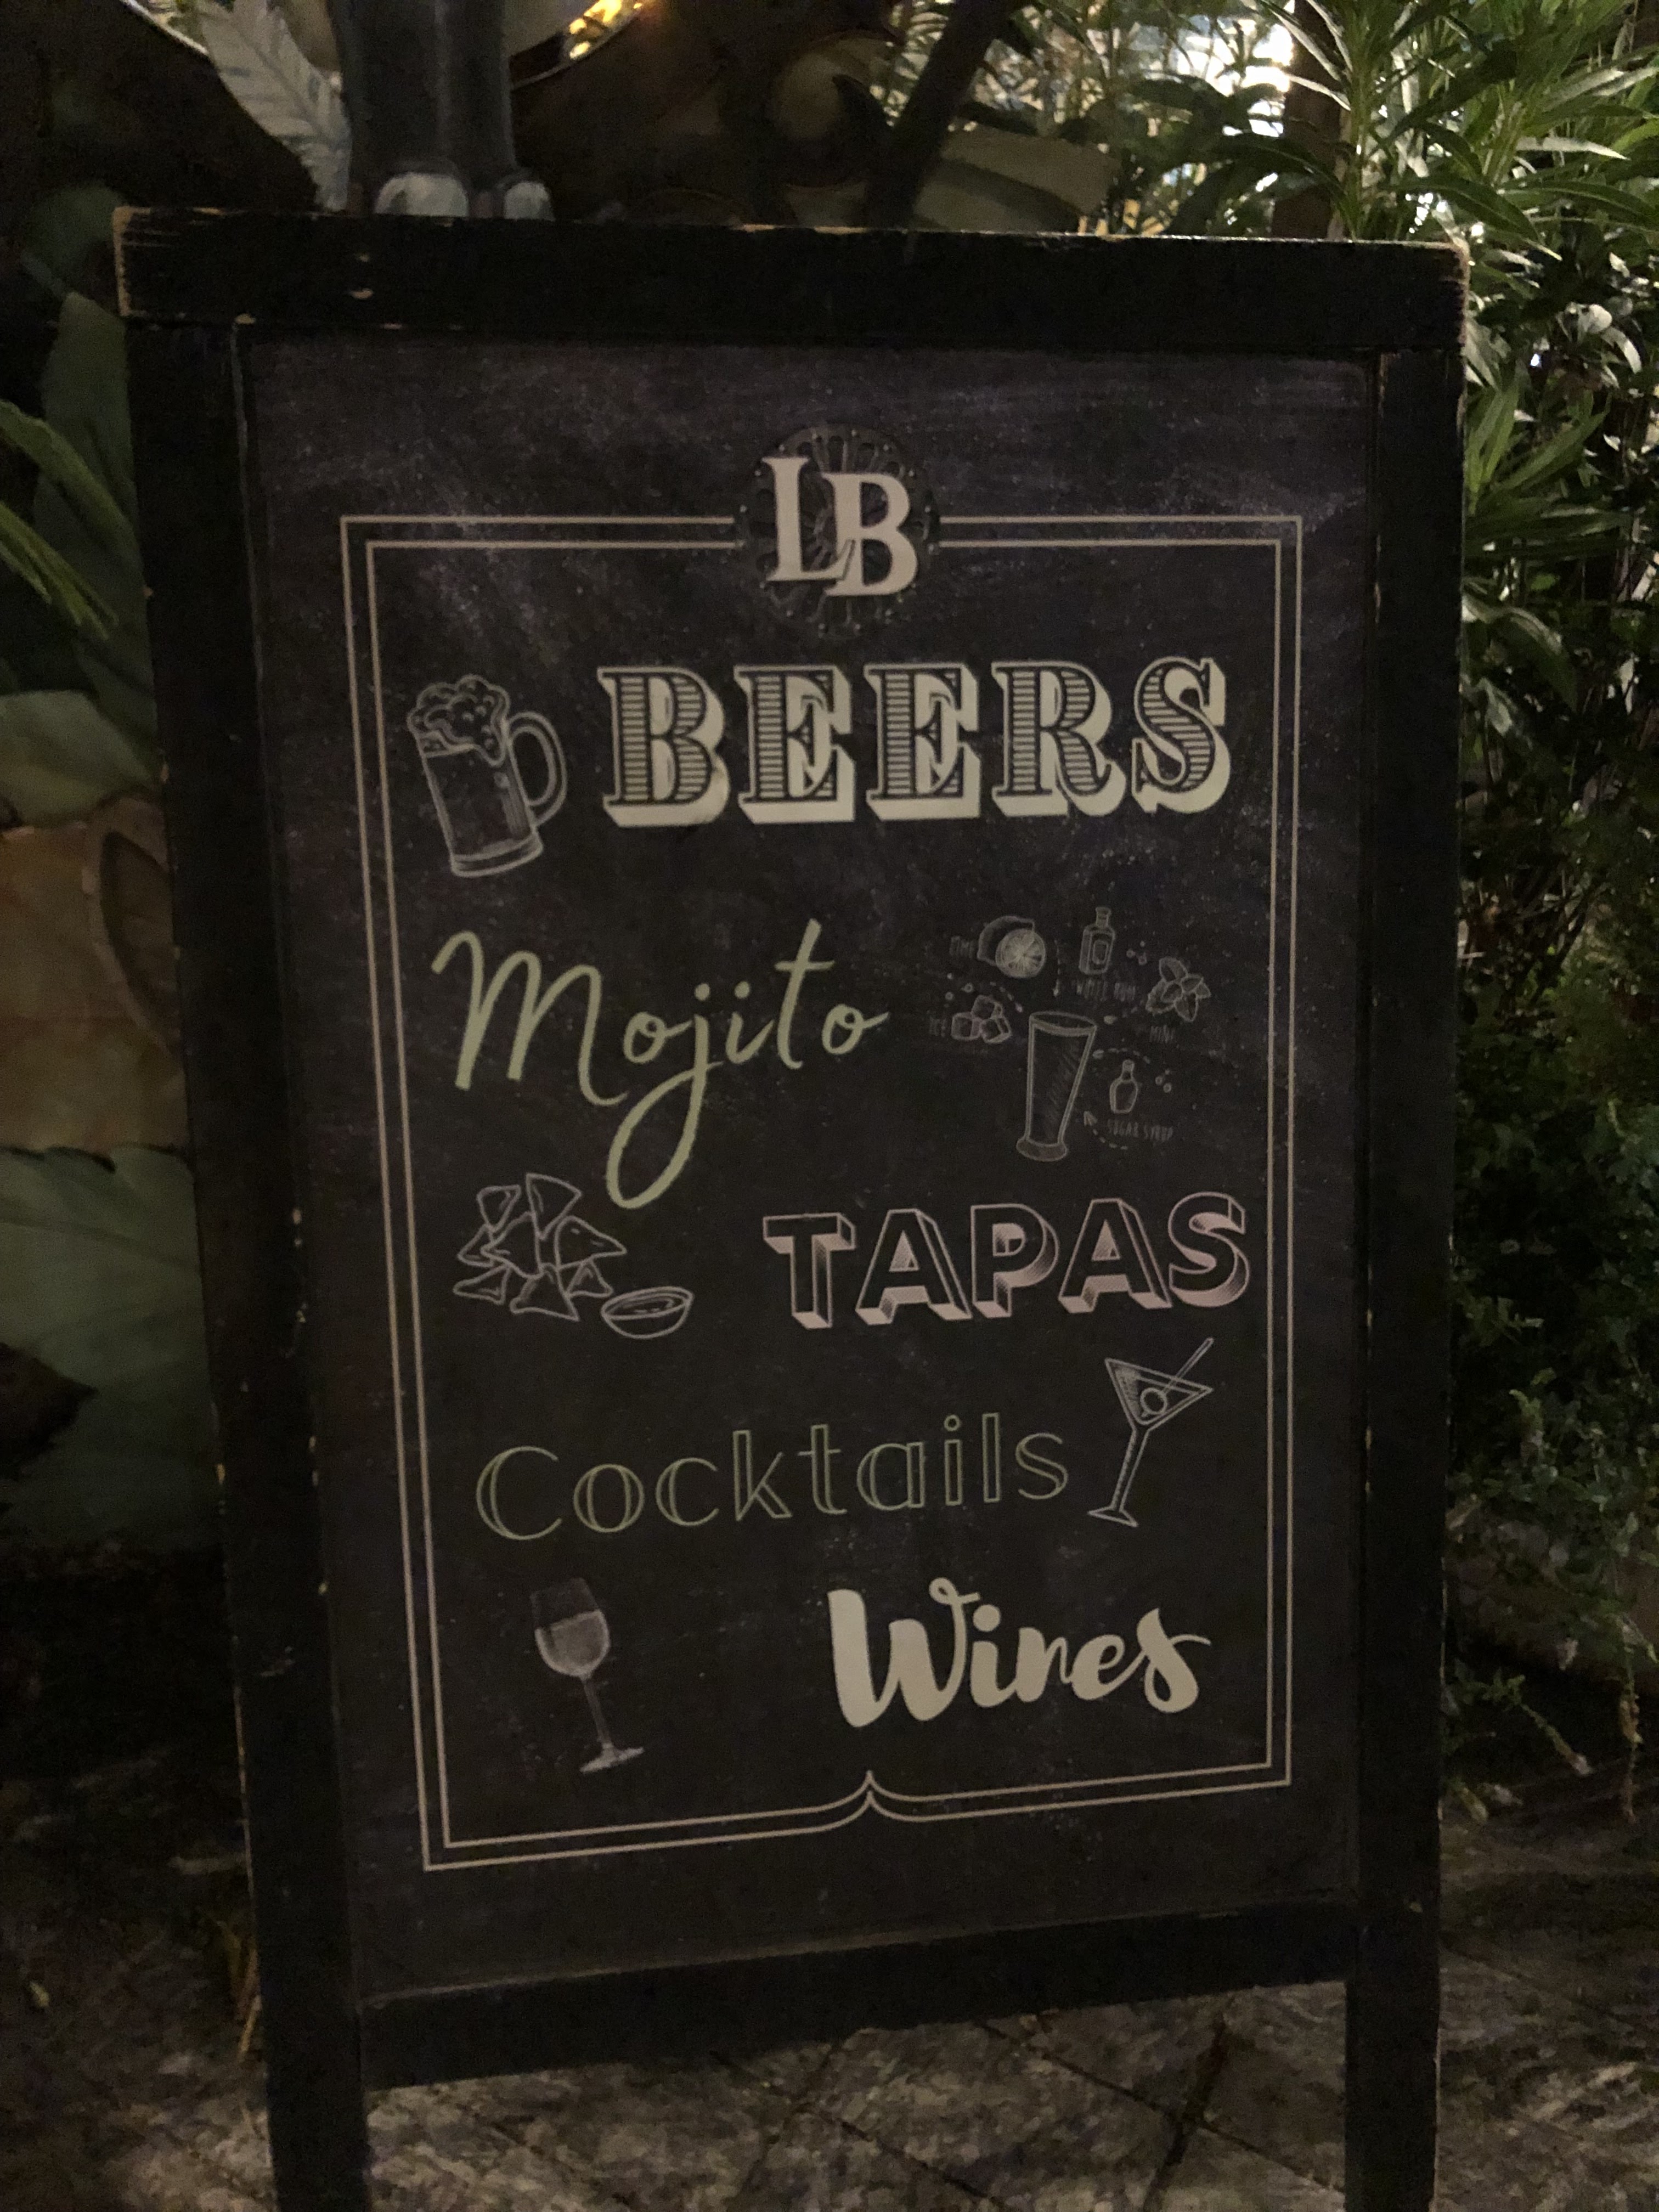 LB
BEERS
Mojito
LIME
WHITE RUM
ICE
MINT
SUGAR SYRUP
TAPAS
Cocktails
Wines